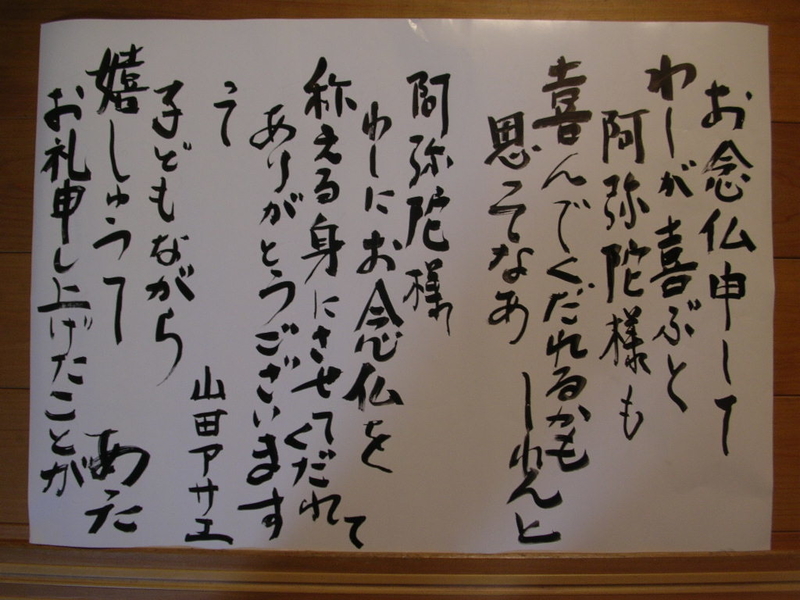 お念仏申して
わしが喜ぶと
阿弥陀様も
喜んでくだれるかも
しれんと
思てなあ
阿弥陀様
わしにお念仏を
称える身にさせて
くだれて
ありがとうございます
って
山田アサエ
子どもながら
嬉しゅうて
お礼申し上げたことが
あった